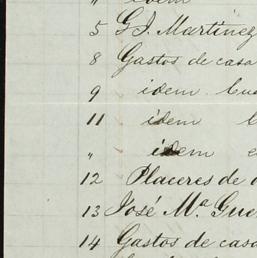 " idem
5 G. J. Martinez
8 Gastos de casa
9 idem
11 idem
" idem
12 Placeres de
13 José Mª Gue
14 Gastos de casa